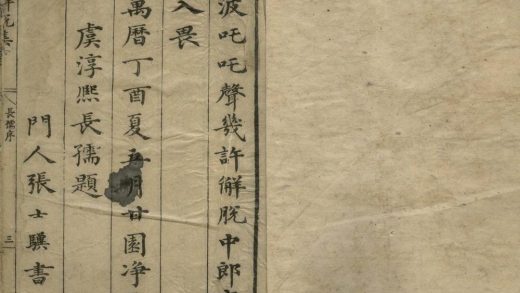 波吒吒聲幾許觧脫中郎
入畏
萬曆丁酉夏五月甘園淨
虞淳熙長孺題
門人張士驥書
脫集
長孺序
三